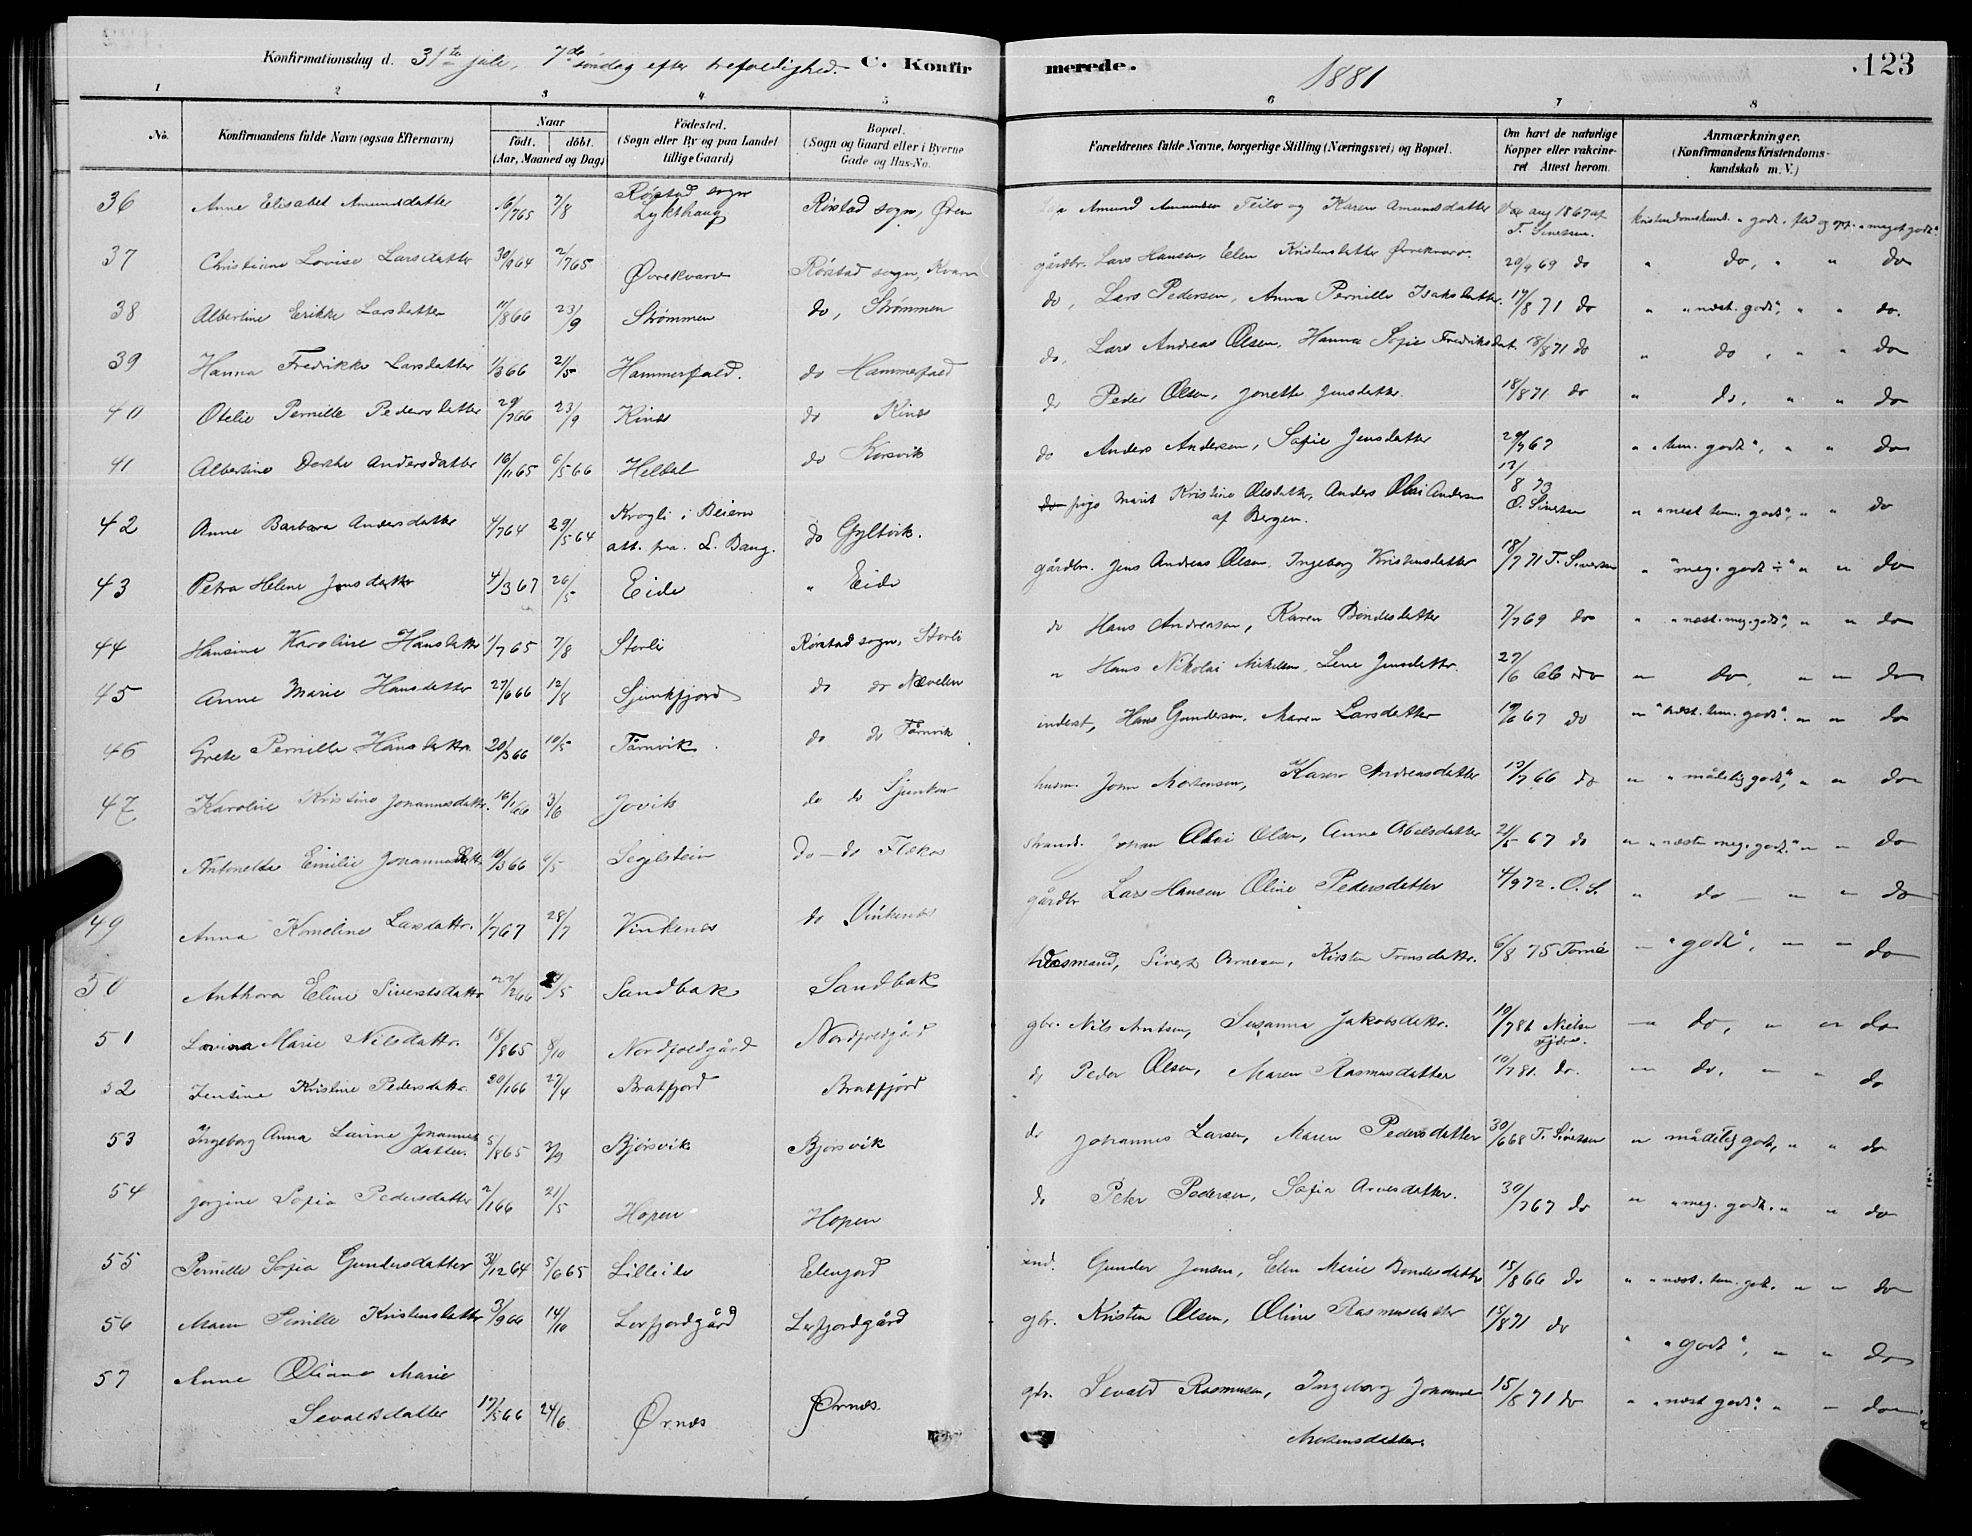 Konfirmationsdag d. 31te juli, 7de søndag efter trefoldighed. C. Konfirmerede. 1881 123
1 2 3 4 5 6 7 8
No. Konfirmandens fulde Navn (ogsaa Efternavn) Naar født. døbt. (Aar, Maaned og Dag) Fødested. (Sogn eller By og paa Landet tillige Gaard) Bopæl. (Sogn og Gaard eller i Byerne Gade og Hus-No. Forældrenes fulde Navne, borgerlige Stilling (Næringsvei) og Bopæl. Om havt de naturlige Kopper eller vakcineret Attest herom. Anmærkninger. (Konfirmandens Kristendomskundskab m. V.)
36 Anne Elisabet Amundsdatter 16/7 65 7/8 Rørstad sogn Lykthaug Rørstad sogn, Øren Amund Amundsen Feilo og Karen Amundsdatter aug 1867 af T. Sivertsen. kristendomskund. godt. flid og opf. meget godt
37 Christine Lovise Larsdatter 30/9 64 2/7 65 Øvrekvarv Rørstad sogn, Kvarv gårdbr. Lars Hansen, Elen Kristensdatter Øvrekvarv. 20/9 69 do " do, " " do
38 Albertine Erikke Larsdatter 11/8 66 23/9 Strømmen do, Strømmen do, Lars Pedersen, Anna Pernille Isaksdatter. 17/8 71 do " "næst. godt", " " do.
39 Hanna Fredrikke Larsdatter 1/3 66 21/5 Hammerfald. do Hammerfald do, Lars Andreas Olsen, Hanna Sofie Fredriksdat. 18/8 71 do " do, " " do
40 Otelie Pernille Pedersdatter 29/7 66 23/9 Kines do Kines do Peder Olsen, Jonette Jensdatter. 18/8 71 do " do, " " do
41 Albertine Dorthe Andersdatter 16/11 65 6/5 66 Heldal do Korsvik do Anders Andersen, Sofie Jensdatter 29/7 67 " "tem. godt", " " do
42 Anne Barbara Andersdatter 4/7 64 29/5 64 Krogli i Beiern att. fra. L. Bang. do Gyltvik. do pige Marit Kristine Olsdatter, Anders Olai Andersen af Bergen. 12/8 73 O. Sivertsen " "næst tem. godt", " " do
43 Petra Helene Jensdatter 4/3 67 26/5 Eide " Eide gårdbr. Jens Andreas Olsen, Ingeborg Kristensdatter 18/7 71 T. Sivertsen " "meg. godt ÷" " " do
44 Hansine Karoline Hansdatter 1/7 65 7/8 Storli Rørstad sogn, Storli do Hans Andreasen, Karen Bendesdatter 7/7 69 do " "næst. meg. godt", " " do
45 Anne Marie Hansdatter 27/6 66 12/8 Sjunkfjord do do Nævelen " Hans Nikolai Mikelsen, Lene Jensdatter. 27/6 66 do " do, " " do
46 Grete Pernille Hansdatter. 20/3 66 10/5 Tårnvik. do do Tårnvik inderst, Hans Gundersen, Maren Larsdatter 19/6 67 do " "næst. tem. godt". " " do
47 Karoline Kristine Johannesdatter. 16/1 66 3/6 Jovik do do Sjunken husm. John Mortensen, Karen Andreasdatter 13/7 66 do " "måtelig godt", " " do
Antonette Emilie Johannesdatter 10/3 66 6/5 Segelstein do – do Flakos strands. Johan Olai Olsen, Anne Abelsdatter 21/5 67 do " "næsten meg. godt." " " do
49 Anna Korneline Larsdatter. 1/7 67 28/7 Vinkenes do Vinkenes gårdbr Lars Hansen Oline Pedersdatter 4/9 72. O. S. " do – " " do
50 Anthora Eline Sivertsdatter 22/2 66 /5 Sandbak Sandbak husmand, Sivert Arnesen, Kirsten Tronsdatter. 6/8 75 Tornø " "godt", " " do
51 Lovisa Marie Nilsdatter. 18/8 65 8/10 Nordfoldgård Nordfoldgård gbr. Nils Antsen, Susanna Jakobsdatter. 10/7 81 Nielsen " do, " " do
52 Jentine Kristine Pedersdatter. 30/1 66 27/4 Bratfjord Bratfjord do Peder Olsen, Maren Rasmusdatter 10/7 81. do. " do, " " do
53 Ingeborg Anna Lavine Johannesdatter. 5/8 65 3/9 Bjørsvik Bjørsvik do Johannes Larsen, Maren Pedersdatter 30/6 68 T. Sivertsen " måtelig godt, " " do
54 Jorgine Sofia Pedersdatter 2/1 66 21/5 Hopen Hopen do Peter Pedersen, Sofia Arnesdatter. 30/7 67 do " "meg. godt. " " do
55 Pernille Sofia Gundersdatter 31/12 64 5/6 65 Lilleide Elenjord ind. Gunder Jensen, Elen Marie Bendesdatter 15/8 66 do " "næst. tem. godt. " " do
56 Maren Pernille Kristensdatter 3/9 66 14/10 Lerfjordgård Lerfjordgård gbr. Kristen Olsen, Oline Rasmusdatter 15/8 71 do " "godt", " " do
57 Anne Oliane Marie Sevaldsdatter 17/5 66 24/6 Ørnes Ørnes. gbr. Sevald Rasmusen, Ingeborg Johanne Mortensdatter. 15/8 71 do " "næst godt". " – do